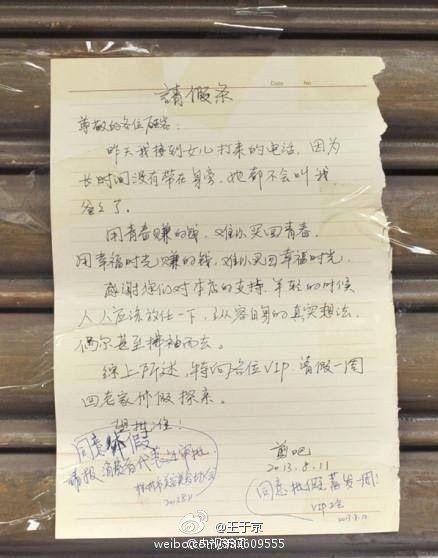 請假条
Date
No.
尊敬的各位顾客:
昨天我接到女儿打来的电话,因为
长时间没有带在身旁,她都不会叫我
爸爸了。
用青春赚的钱,难以买回青春,
用幸福时光赚的钱,难以买回幸福时光。
感谢您们对本店的支持,年轻的时候
人人应该放任一下,从容自身的真实想法,
偶尔甚至拂袖而去。
综上所述,特向各位VIP请假一周
回老家休假探亲。
望批准!
同意休假
剪吧
2013.5.11
同意批假落发一周!
VIP
@王于京
weibo.com/